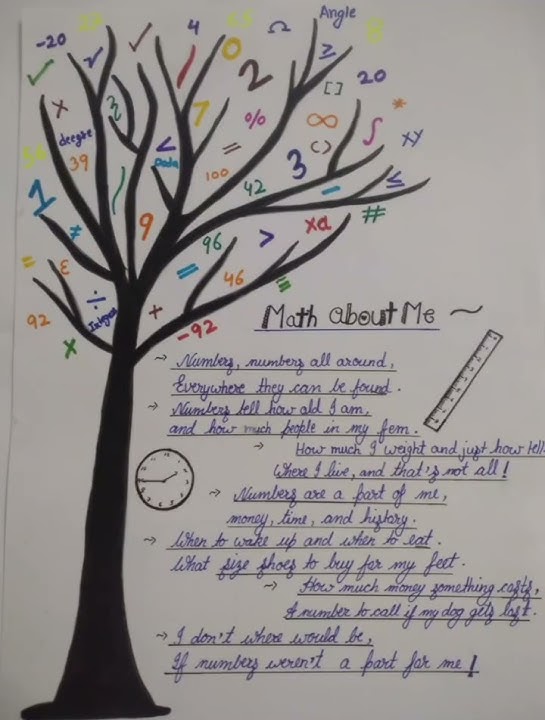 Angle
-20
23
4
Ω
8
0
≥
2
[ ]
20
3
7
%
∞
*
∫
xy
x
degree
39
<
Data
=
100
42
3
< >
≤
1
≠
9
96
>
xa
#
=
ε
÷
Integer
+
=
46
92
x
-92
Math about Me ~
→ Numbers, numbers all around,
Everywhere they can be found.
→ Numbers tell how old I am,
and how much people in my fem.
→ How much I weight and just how tell
Where I live, and that's not all!
→ Numbers are a part of me,
money, time, and histary.
→ When to wake up and when to eat.
What size shoes to buy for my feet.
→ How much money something costs,
A number to call if my dog gets last.
→ I don't where would be,
If numbers weren't a part far me!